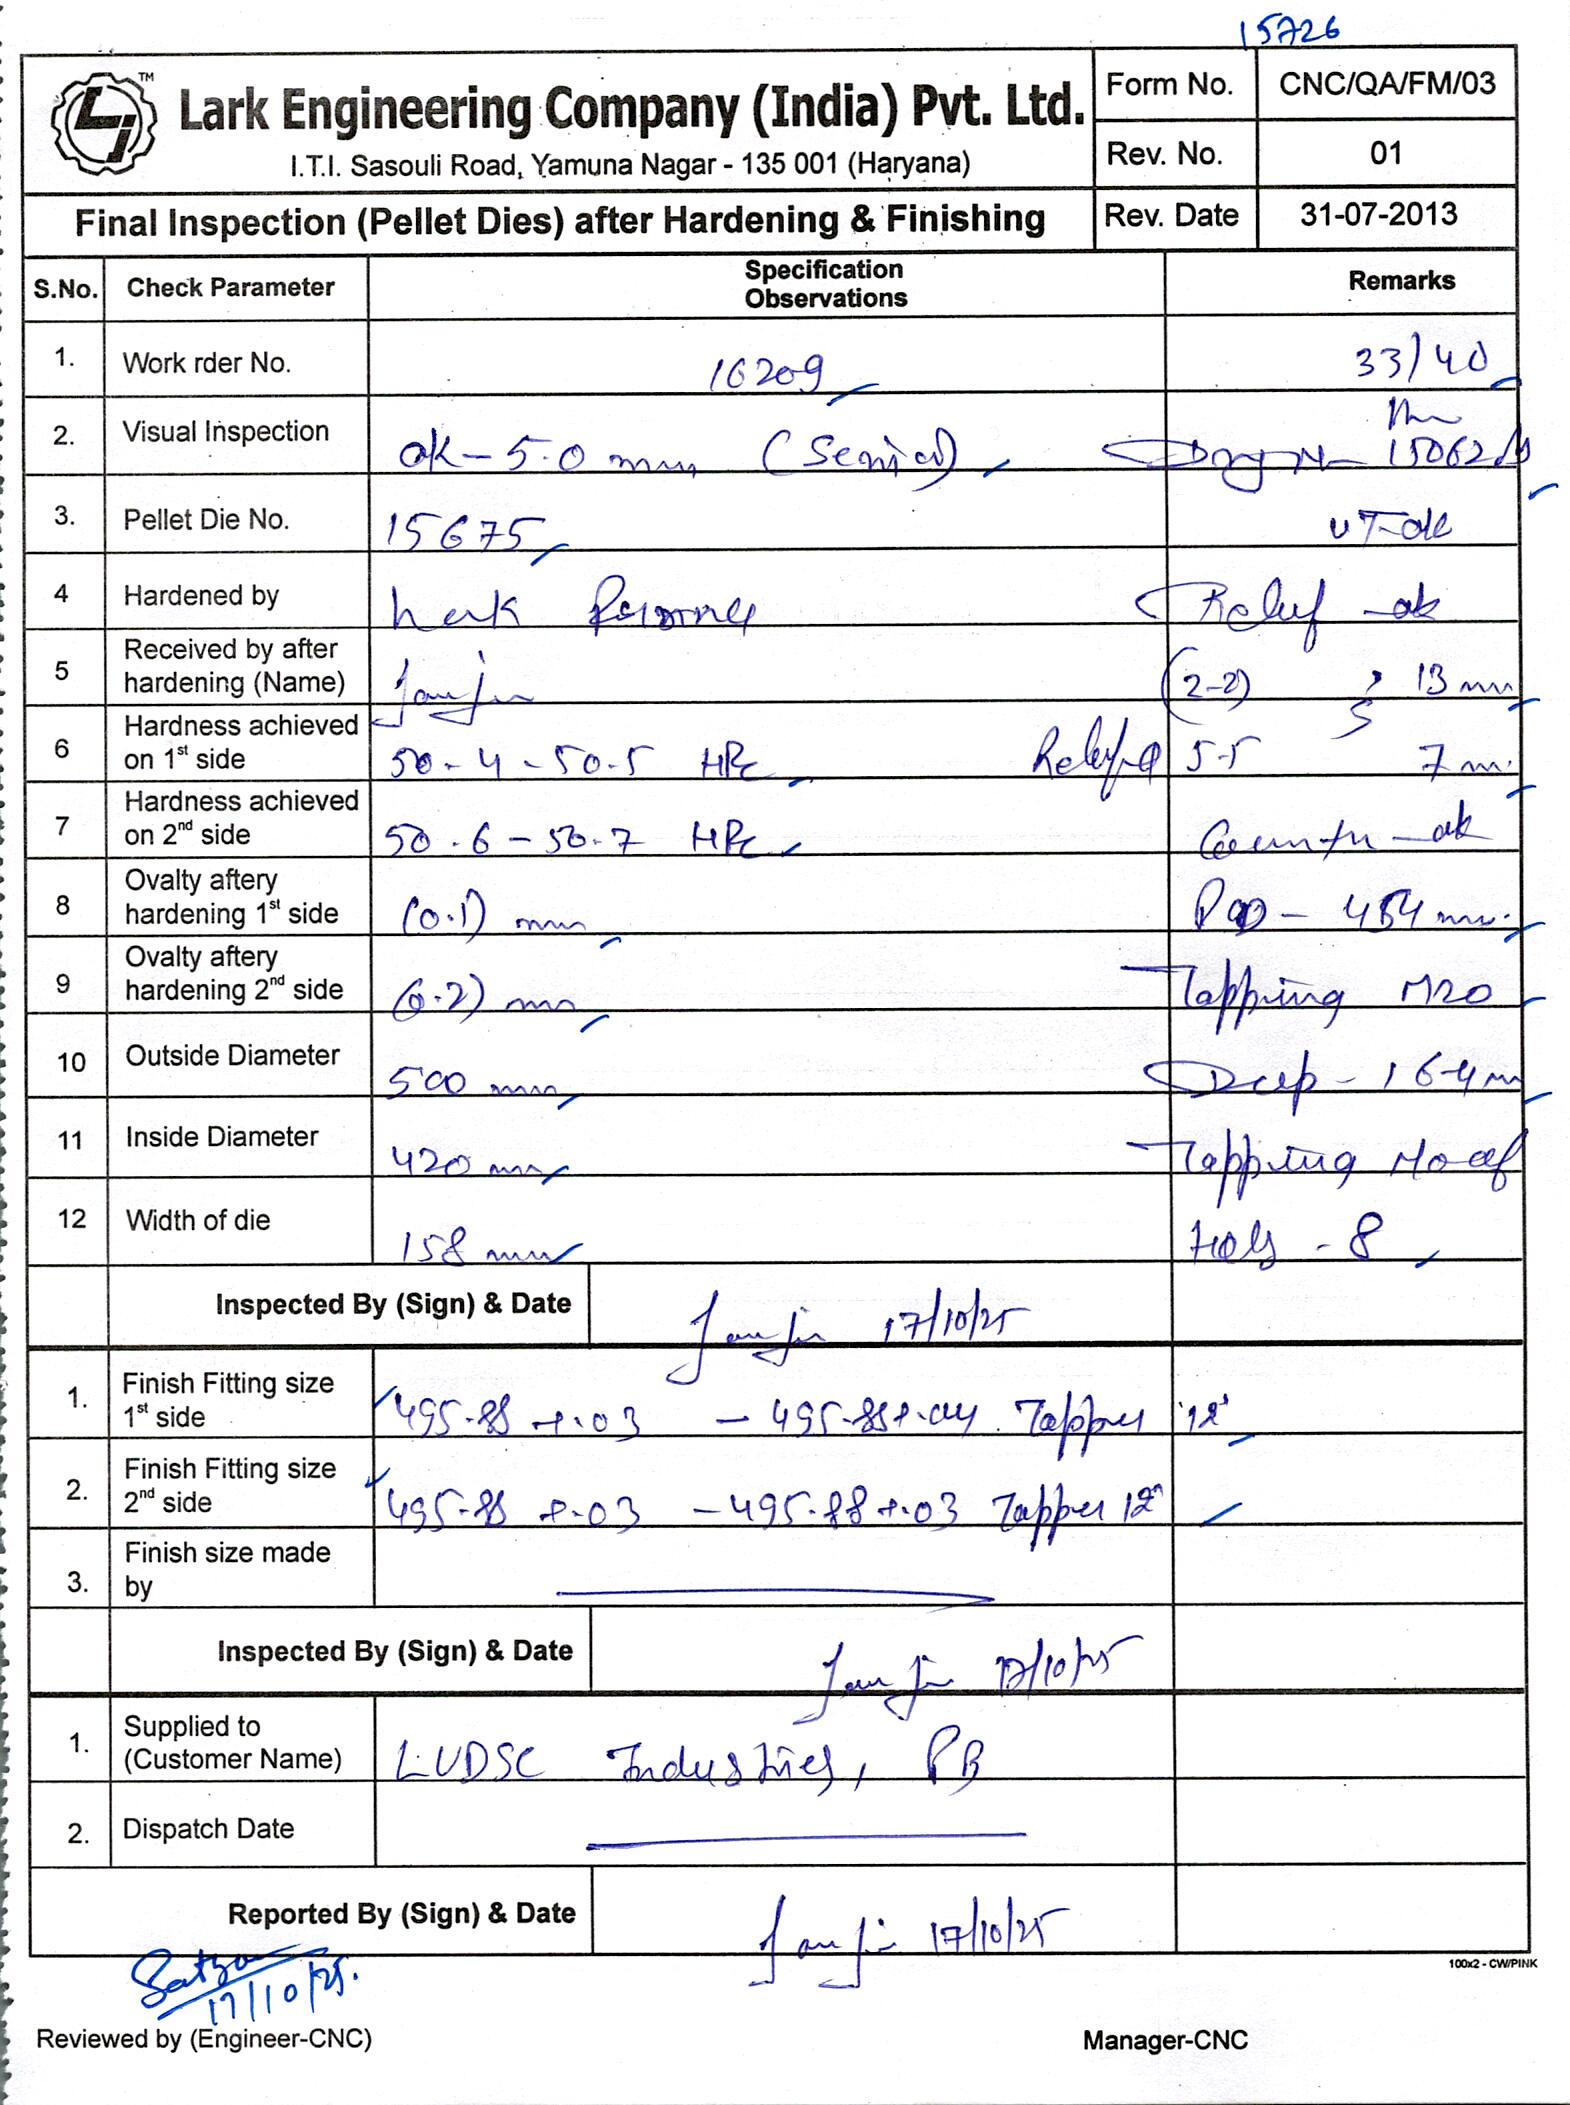 15726
Lark Engineering Company (India) Pvt. Ltd.
TM
I.T.I. Sasouli Road, Yamuna Nagar - 135 001 (Haryana)
Form No. CNC/QA/FM/03
Rev. No. 01
Final Inspection (Pellet Dies) after Hardening & Finishing
Rev. Date 31-07-2013
S.No. Check Parameter Specification Observations Remarks
1. Work rder No. 16209 33/40
2. Visual Inspection ok - 5.0 mm 15062
3. Pellet Die No. 15675 UT-ok
4 Hardened by Lark Relief - ok
5 Received by after hardening (Name) (2-2) 13 mm
6 Hardness achieved on 1st side 50.4 - 50.5 HRc Relief 5.5 7 mm
7 Hardness achieved on 2nd side 50.6 - 50.7 HRc Counter - ok
8 Ovalty aftery hardening 1st side (0.1) mm 454 mm.
9 Ovalty aftery hardening 2nd side (0.2) mm Tapping M20
10 Outside Diameter 500 mm Deep - 16.4 m
11 Inside Diameter 420 mm Tapping No of
12 Width of die 158 mm Hols - 8
Inspected By (Sign) & Date 17/10/25
1. Finish Fitting size 1st side 495.88 +.03 - 495.88+.04 Tapper 12°
2. Finish Fitting size 2nd side 495.88 +.03 - 495.88+.03 Tapper 12°
3. Finish size made by
Inspected By (Sign) & Date 17/10/25
1. Supplied to (Customer Name) LUDSC Industries, PB
2. Dispatch Date
Reported By (Sign) & Date 17/10/25
100x2 - CW/PINK
17/10/25.
Reviewed by (Engineer-CNC) Manager-CNC